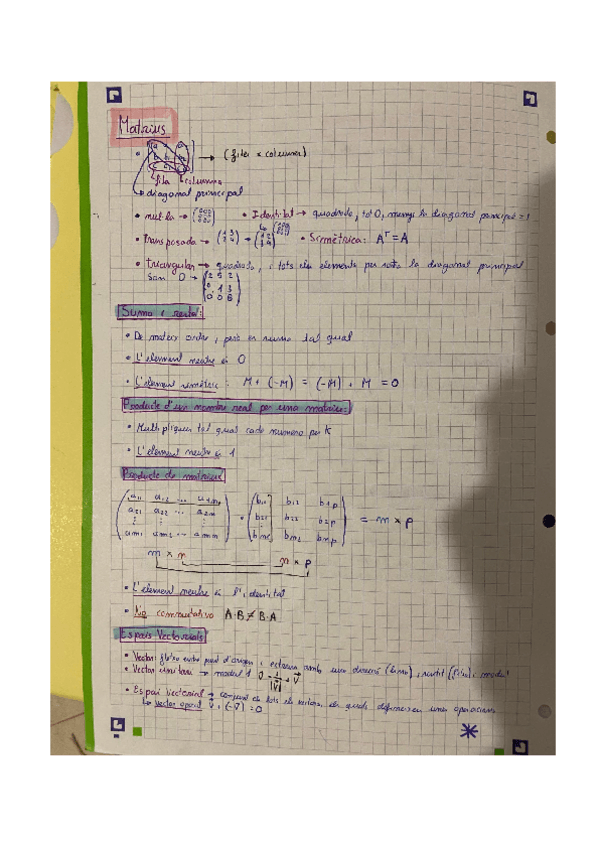 Matrius
→ (files x columnes)
fila columna
↳ diagonal principal
• nul·la → • Identitat → quadrada, tot 0, menys la diagonal principal = 1
• Transposada → (1 3 2 4) → (1 2 3 4) • Simètrica: Aᵀ = A
• triangular → quadrada, i tots els elements per sota la diagonal principal
són 0 →
0 1 3
0 0 6
Suma i resta:
• De mateix ordre, però es suma tal qual
• L'element neutre és 0
• L'element simètric: M + (-M) = (-M) + M = 0
Producte d'un nombre real per una matriu:
• Multipliquem tal qual cada número per K
• L'element neutre és 1
Producte de matrius
a11 a12 ... a1m b11 b12 b1p
a21 a22 ... a2m • b21 b22 b2p = m x p
am1 am2 ... amn bn1 bn2 bnp
m x n n x p
• L'element neutre és l'identitat
• No commutativa A·B ≠ B·A
Espais Vectorials
• Vector: fletxa entre punt d'origen i extrem amb una direcció (línia), sentit (fletxa) i mòdul
• Vector unitari → mòdul 1 U = 1/|V| · V
• Espai Vectorial → conjunt de tots els vectors, els quals defineixen unes operacions
↳ vector oposat v + (-v) = 0